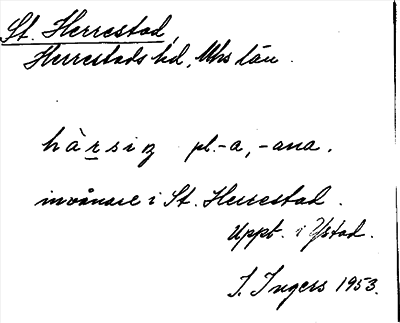 St. Herrestad,
Herrestads hd, Mhs län.
hàrsiŋ pl. -a, -ana.
invånare i St. Herrestad.
Uppt. i Ystad.
I. Ingers 1953.